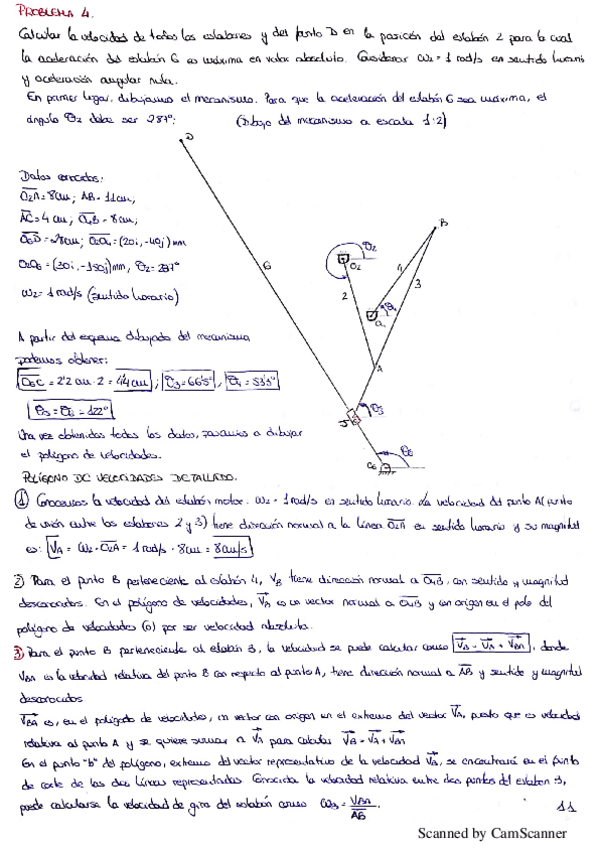 PROBLEMA 4.
Calcular la velocidad de todos los eslabones y del punto D en la posición del eslabón 2 para la cual
la aceleración del eslabón 6 es máxima en valor absoluto. Considerar ω2 = 1 rad/s en sentido horario
y aceleración angular nula.
En primer lugar, dibujamos el mecanismo. Para que la aceleración del eslabón 6 sea máxima, el
ángulo θ2 debe ser 287º: (Dibujo del mecanismo a escala 1:2)
D
Datos conocidos:
O2A = 8cm; AB = 11cm,
AC = 4 cm; O4B = 8cm;
O6D = 28cm; O2O4 = (20i, -40j) mm
O2O6 = (30i, -150j) mm, θ2 = 287º
ω2 = 1 rad/s (sentido horario)
B
θ2
O2
6
4
3
2
θ4
O4
A
A partir del esquema dibujado del mecanismo
podemos obtener:
O6C = 2'2 cm · 2 = 4'4 cm ; θ3 = 66'5º , θ4 = 53'5º
θ5 = θ6 = 122º
θ3
5
θ6
O6
Una vez obtenidos todos los datos, pasamos a dibujar
el polígono de velocidades.
POLÍGONO DE VELOCIDADES DETALLADO.
1 Conocemos la velocidad del eslabón motor. ω2 = 1 rad/s en sentido horario. La velocidad del punto A (punto
de unión entre los eslabones 2 y 3) tiene dirección normal a la línea O2A en sentido horario y su magnitud
es: VA = ω2 · O2A = 1 rad/s · 8cm = 8cm/s
2) Para el punto B perteneciente al eslabón 4, VB tiene dirección normal a O4B, con sentido y magnitud
desconocidos. En el polígono de velocidades, VB es un vector normal a O4B y con origen en el polo del
polígono de velocidades (o) por ser velocidad absoluta.
3) Para el punto B perteneciente al eslabón 3, la velocidad se puede calcular como VB = VA + VBA, donde
VBA es la velocidad relativa del punto B con respecto al punto A, tiene dirección normal a AB y sentido y magnitud
desconocidos
VBA es, en el polígono de velocidades, un vector con origen en el extremo del vector VA, puesto que es velocidad
relativa al punto A y se quiere sumar a VA para calcular VB = VA + VBA
En el punto "b" del polígono, extremo del vector representativo de la velocidad VB, se encontrará en el punto
de corte de las dos líneas representadas. Conocida la velocidad relativa entre dos puntos del eslabón 3,
puede calcularse la velocidad de giro del eslabón como ω3 = VBA / AB.
11
Scanned by CamScanner